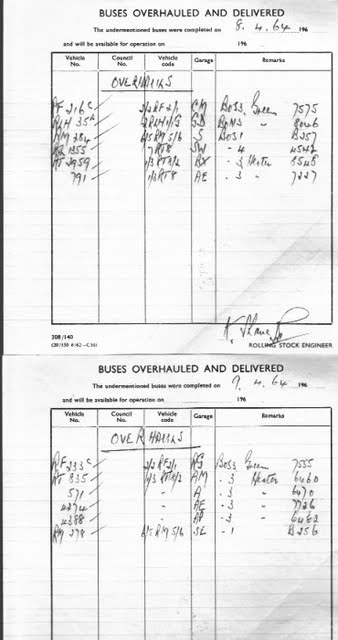 BUSES OVERHAULED AND DELIVERED
The undermentioned buses were completed on 8.4.64 196
and will be available for operation on 196
Vehicle No. Council No. Vehicle code Garage Remarks
OVERHAULS
RF 216 c 2/2 RF 2/1 CM BOS3 Green 7575
RLH 35 SD BON3 " 8046
RM 284 6/5 RM 5/6 S BOS1 B257
1355 7 RT8 SW - 4 4542
RT 2959 1/3 BX - 3 Heater 8548
791 1/3 RT8 AE - 3 7227
308/140
ROLLING STOCK ENGINEER
BUSES OVERHAULED AND DELIVERED
The undermentioned buses were completed on 9.4.64 196
and will be available for operation on 196
Vehicle No. Council No. Vehicle code Garage Remarks
OVERHAULS
RF 233 c 2/2 RF 2/1 RG BOS3 Green 7555
RT 835 AM - 3 Heater 6460
571 - A - 3 " 6470
4274 - AE - 3 " 7726
4388 - AP - 3 " 6462
RM 278 6/5 RM 5/6 SE - 1 B256